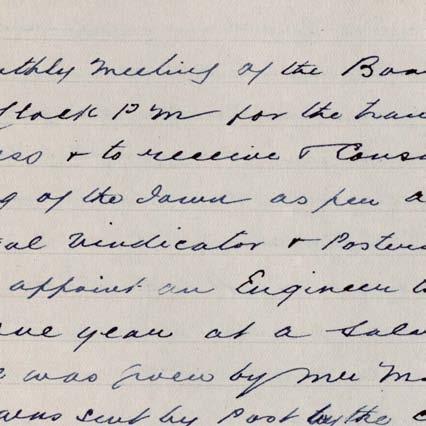 nthly Meeting of the Boar
Clock P M for the tran
ess & to receive & Cons
g of the Town as per a
al Vindicator & Posters
appoint an Engineer
one year at a Sala
was given by Mr M
was sent by Post by the C